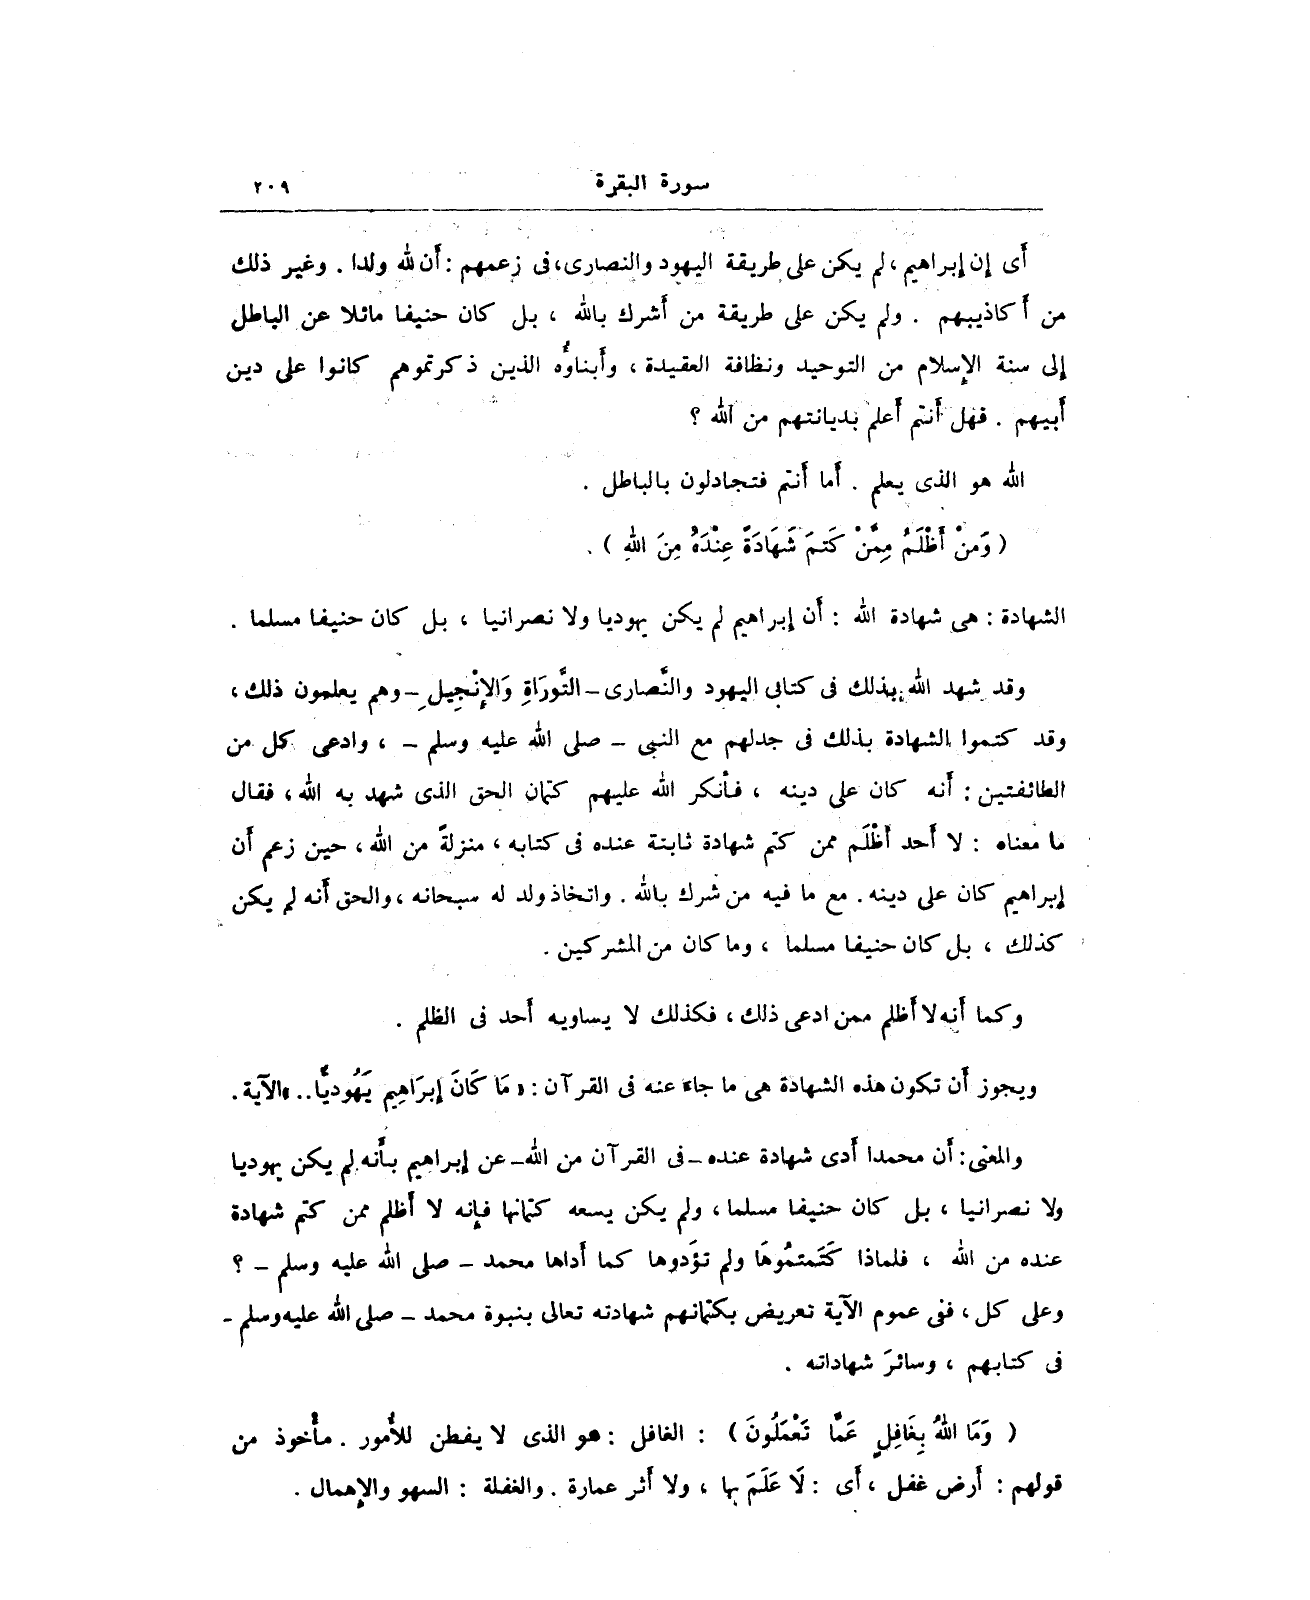 سورة البقرة ٢٠٩
أَى إن إبراهيم، لم يكن على طريقة اليهود والنصارى، فى زعمهم : أَن لله ولدا . وغير ذلك
من أَكاذيبهم . ولم يكن على طريقة من أَشرك بالله ، بل كان حنيفا مائلا عن الباطل
إلى سنة الإسلام من التوحيد ونظافة العقيدة ، وأَبناؤُه الذين ذكرتموهم كانوا على دين
أَبيهم . فهل أَنتم أَعلم بديانتهم من الله ؟
الله هو الذى يعلم . أَما أَنتم فتجادلون بالباطل .
( وَمَنْ أَظْلَمُ مِمَّنْ كَتَمَ شَهَادَةً عِنْدَهُ مِنَ اللهِ ) .
الشهادة : هى شهادة الله : أَن إبراهيم لم يكن يهوديا ولا نصرانيا ، بل كان حنيفا مسلما .
وقد شهد الله بذلك فى كتابى اليهود والنَّصارى – التَّورَاةِ وَالإنْجِيلِ – وهم يعلمون ذلك ،
وقد كتموا الشهادة بذلك فى جدلهم مع النبى – صلى الله عليه وسلم – ، وادعى كل من
الطائفتين : أَنه كان على دينه ، فأَنكر الله عليهم كتمان الحق الذى شهد به الله ، فقال
ما معناه : لا أَحد أَظْلَم ممن كتم شهادة ثابتة عنده فى كتابه ، منزلةً من الله ، حين زعم أَن
إبراهيم كان على دينه . مع ما فيه من شرك بالله . واتخاذ ولد له سبحانه ، والحق أَنه لم يكن
كذلك ، بل كان حنيفا مسلما ، وما كان من المشركين .
وكما أَنه لا أَظلم ممن ادعى ذلك ، فكذلك لا يساويه أَحد فى الظلم .
ويجوز أَن تكون هذه الشهادة هى ما جاءَ عنه فى القرآن : « مَا كَانَ إبرَاهِيم يَهُوديًّا .. » الآية .
والمعنى : أَن محمدا أَدى شهادة عنده – فى القرآن من الله – عن إبراهيم بأَنه لم يكن يهوديا
ولا نصرانيا ، بل كان حنيفا مسلما ، ولم يكن يسعه كتمانها فإنه لا أَظلم ممن كتم شهادة
عنده من الله ، فلماذا كَتَمتمُوهَا ولم تؤَدوها كما أَداها محمد – صلى الله عليه وسلم – ؟
وعلى كل ، ففى عموم الآية تعريض بكتمانهم شهادته تعالى بنبوة محمد – صلى الله عليه وسلم –
فى كتابهم ، وسائرَ شهاداته .
( وَمَا اللهُ بِغَافِلٍ عَمَّا تَعْمَلُونَ ) : الغافل : هو الذى لا يفطن للأُمور . مأْخوذ من
قولهم : أَرض غفل ، أَى : لَا عَلَمَ بها ، ولا أَثر عمارة . والغفلة : السهو والإهمال .